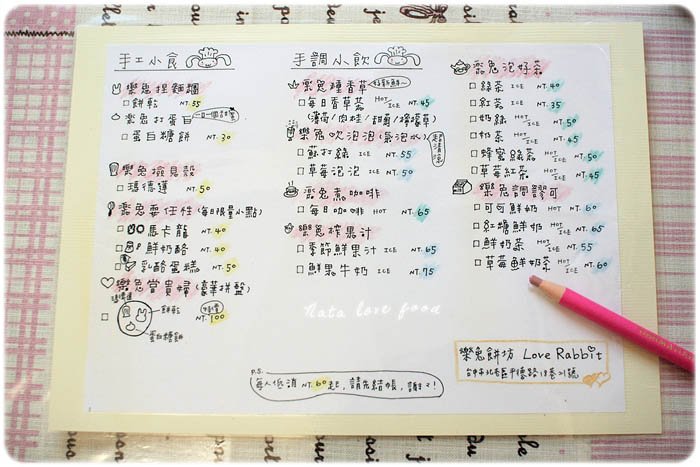 手工小食
樂兔捏麵糰
餅乾 NT.35
樂兔打蛋白
蛋白糖餅 NT.30
樂兔撿貝殼
瑪德蓮 NT.50
樂兔耍任性(每日限量小點)
馬卡龍 NT.40
鮮奶酪 NT.40
乳酪蛋糕 NT.50
樂兔當貴婦(豪華拼盤)
瑪德蓮
餅乾
蛋白糖餅
NT.100
手調小飲
樂兔種香草
每日香草茶 HOT ICE NT.45
(薄荷/肉桂/甜菊/檸檬草)
樂兔吹泡泡(氣泡水)
超清涼
蘇打綠 ICE NT.55
草莓泡泡 ICE NT.50
樂兔煮咖啡
每日咖啡 HOT NT.65
樂兔榨果汁
季節鮮果汁 ICE NT.65
鮮果牛奶 ICE NT.75
樂兔泡好茶
綠茶 ICE NT.40
紅茶 ICE NT.35
奶綠 HOT ICE NT.50
奶茶 HOT ICE NT.45
蜂蜜綠茶 HOT ICE NT.50
草莓紅茶 HOT ICE NT.45
樂兔調謬可
可可鮮奶 HOT NT.60
紅糖鮮奶 HOT ICE NT.65
鮮奶茶 HOT ICE NT.55
草莓鮮奶茶 HOT ICE NT.60
Nata love food
樂兔餅坊 Love Rabbit
P.S.
每人低消NT.60起,請先結帳,謝謝!